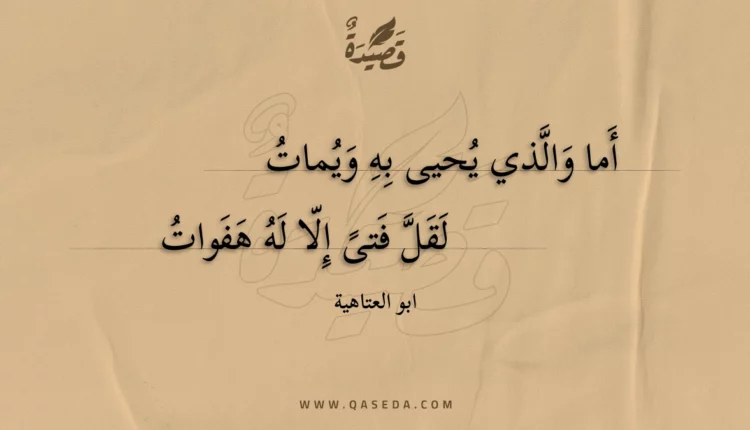 قَصِيْدَةٌ
أَما وَالَّذي يُحيى بِهِ وَيُماتُ
لَقَلَّ فَتىً إِلّا لَهُ هَفَواتُ
ابو العتاهية
WWW.QASEDA.COM